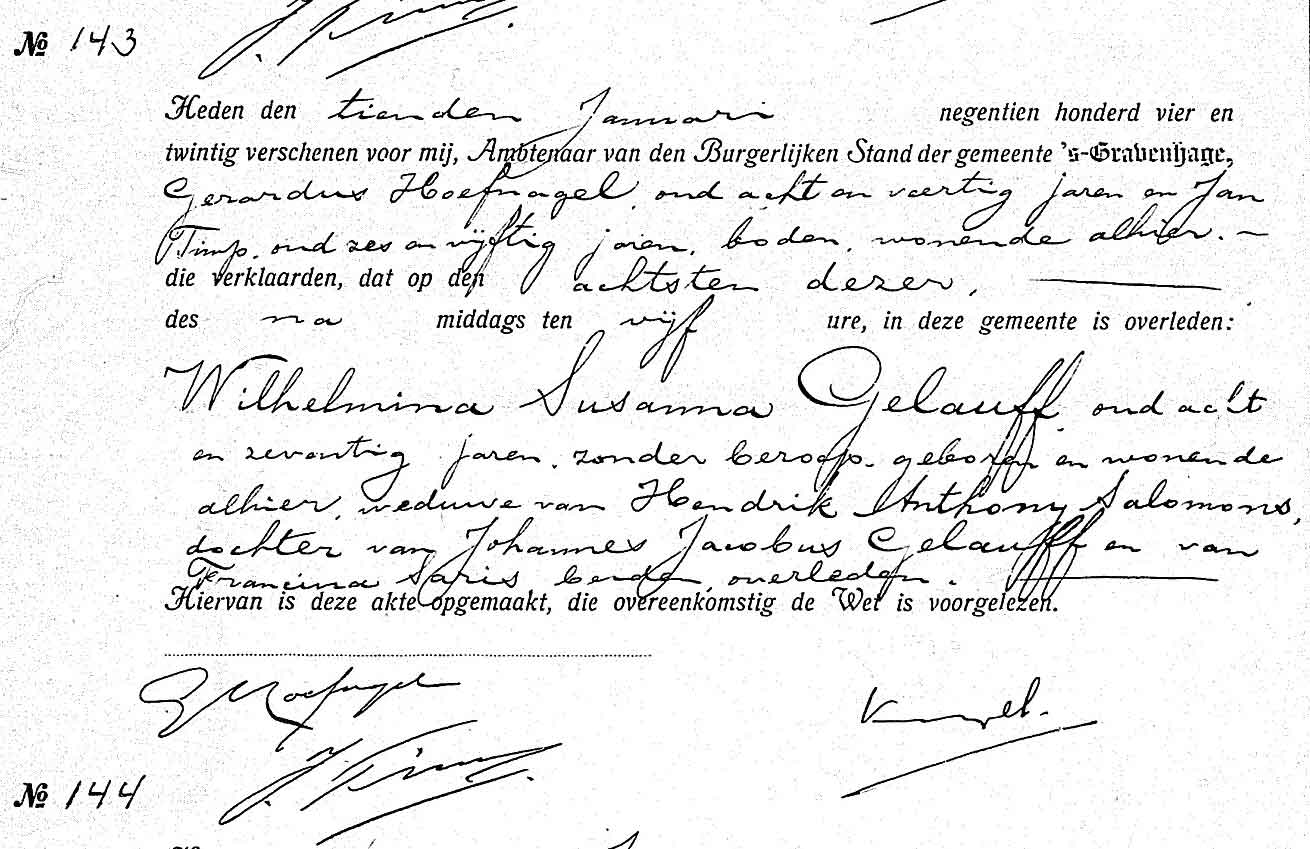 № 143
Heden den tienden Januari negentien honderd vier en
twintig verschenen voor mij, Ambtenaar van den Burgerlijken Stand der gemeente 's-Gravenhage,
Gerardus Hoefnagel, oud acht en veertig jaren en Jan
Timp, oud zes en vijftig jaren, boden, wonende alhier. —
die verklaarden, dat op den achtsten dezer,
des na middags ten vijf ure, in deze gemeente is overleden:
Wilhelmina Susanna Gelauff, oud acht
en zeventig jaren, zonder beroep, geboren en wonende
alhier, weduwe van Hendrik Anthony Salomons,
dochter van Johannes Jacobus Gelauff en van
Francina Saris, beiden overleden.
Hiervan is deze akte opgemaakt, die overeenkomstig de Wet is voorgelezen.
G Hoefnagel
J. Timp
№ 144